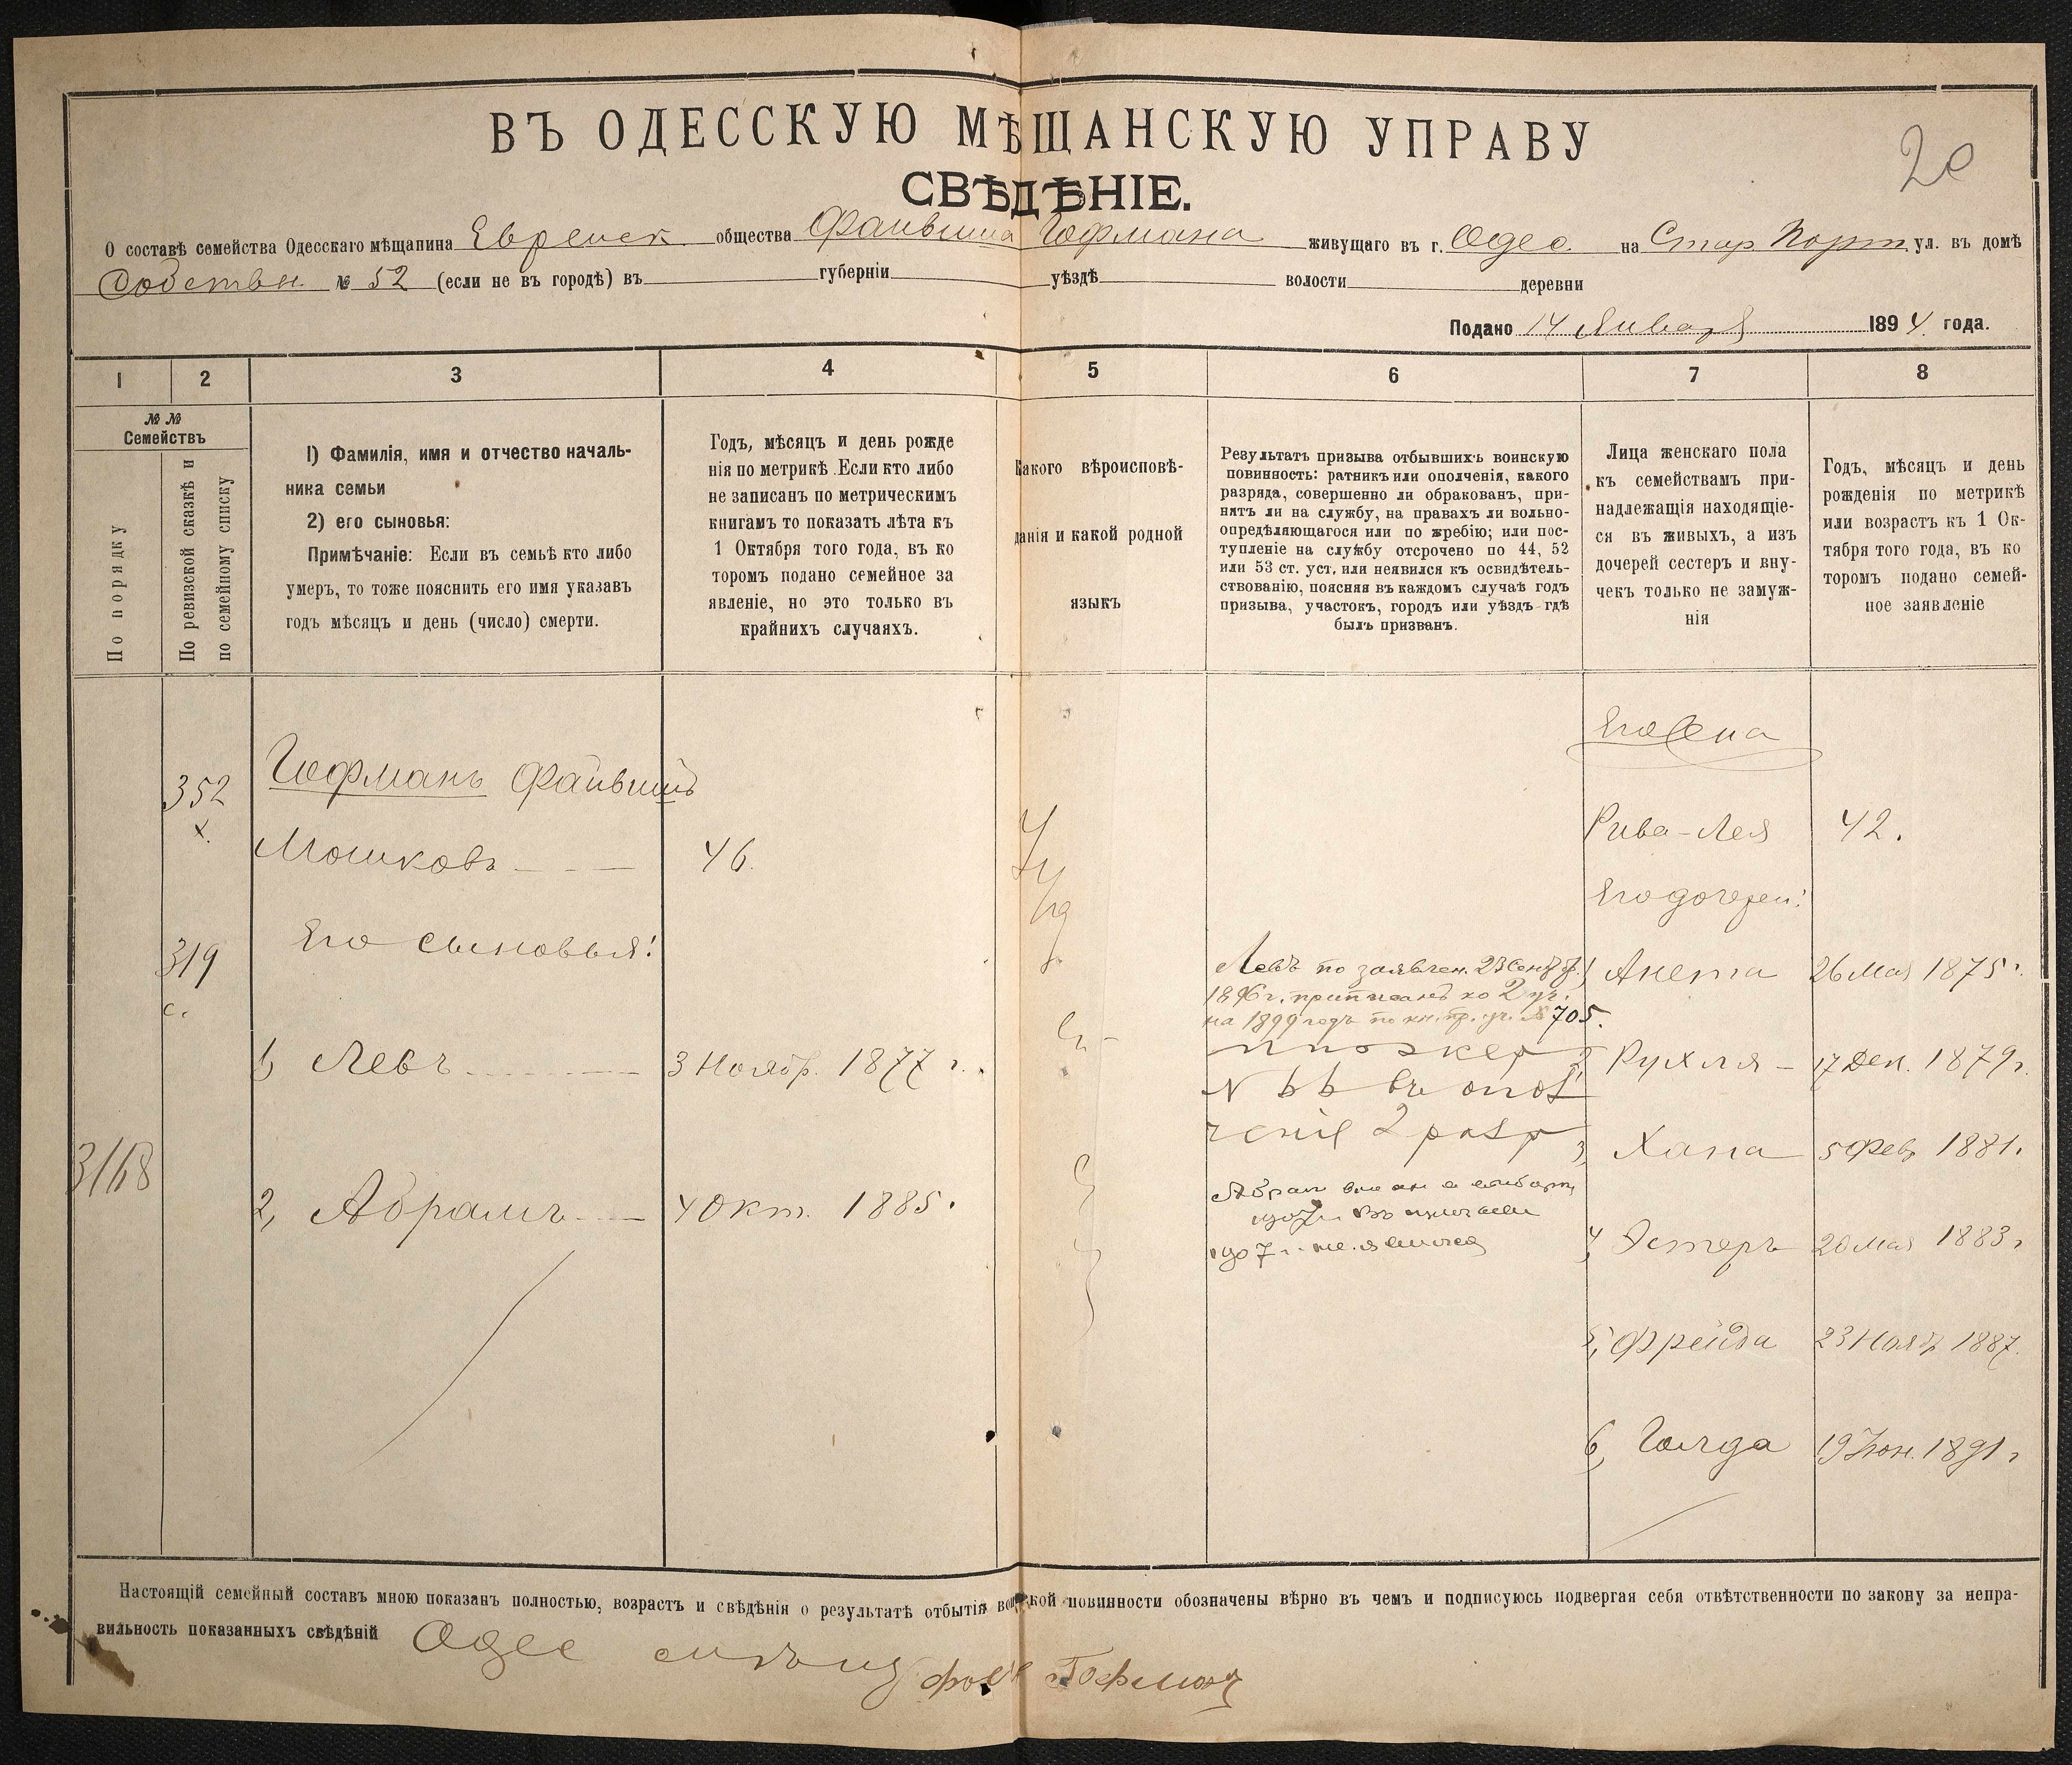 20
ВЪ ОДЕССКУЮ МѢЩАНСКУЮ УПРАВУ
СВѢДѢНІЕ.
О составѣ семейства Одесскаго мѣщанина Еврейск общества Файвиша Гофмана живущаго въ г. Одес. на Стар. Порт ул. въ домѣ
Собствен. № 52 (если не въ городѣ) въ губерніи уѣздѣ волости деревни
Подано 14 Января 1894 года.
1 2 3 4 5 6 7 8
№ № Семействъ
По порядку
По ревизской сказкѣ и
по семейному списку
1) Фамилія, имя и отчество началь-
ника семьи
2) его сыновья:
Примѣчаніе: Если въ семьѣ кто либо
умеръ, то тоже пояснить его имя указавъ
годъ мѣсяцъ и день (число) смерти.
Годъ, мѣсяцъ и день рожде
нія по метрикѣ. Если кто либо
не записанъ по метрическимъ
книгамъ то показать лѣта къ
1 Октября того года, въ ко
торомъ подано семейное за
явленіе, но это только въ
крайнихъ случаяхъ.
Какого вѣроисповѣ-
данія и какой родной
языкъ
Результатъ призыва отбывшихъ воинскую
повинность: ратникъ или ополченія, какого
разряда, совершенно ли обракованъ, при-
нятъ ли на службу, на правахъ ли вольно-
опредѣляющагося или по жребію; или пос-
тупленіе на службу отсрочено по 44, 52
или 53 ст. уст. или неявился къ освидѣтель-
ствованію, поясняя въ каждомъ случаѣ годъ
призыва, участокъ, городъ или уѣздъ гдѣ
былъ призванъ.
Лица женскаго пола
къ семействамъ при-
надлежащія находящіе-
ся въ живыхъ, а изъ
дочерей сестеръ и вну-
чекъ только не замуж-
нія
Годъ, мѣсяцъ и день
рожденія по метрикѣ
или возрастъ къ 1 Ок-
тября того года, въ ко
торомъ подано семей-
ное заявленіе
Его жена
352 Гофманъ Файвишъ
х.
Мошковъ 46. Рива-Лея 42.
Его дочери:
319 Его сыновья:
с.
Левъ по заявлен. 23 Сент.
1896 г. приписанъ ко 2 уч.
на 1899 годъ по кн. пр. уч. № 705.
1, Анета 26 Мая 1875 г.
1, Левъ 3 Ноябр. 1877 г.
2, Рухля 17 Дек. 1879 г.
въ опол
ченіе 2 разр
3, Хана 5 Фев. 1881.
3168
2, Абрамъ 4 Окт. 1885.
Абрам
1907 г.
1907 г. не явился
4, Эстеръ 20 Мая 1883 г
5, Фрейда 23 Нояб 1887.
6, Голда 19 Іюн. 1891 г
Настоящій семейный составъ мною показанъ полностью, возрастъ и свѣдѣнія о результатѣ отбытія воинской повинности обозначены вѣрно въ чемъ и подписуюсь подвергая себя отвѣтственности по закону за непра-
вильность показанныхъ свѣдѣній Одес Гофман